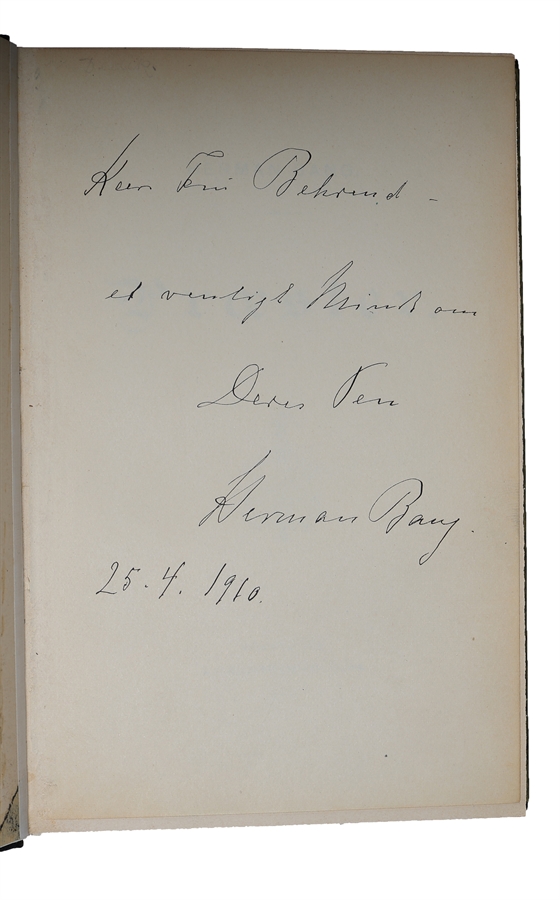 Behrend –
et venligt Minde om
Deres Ven
Herman Bang.
25.4.1910.